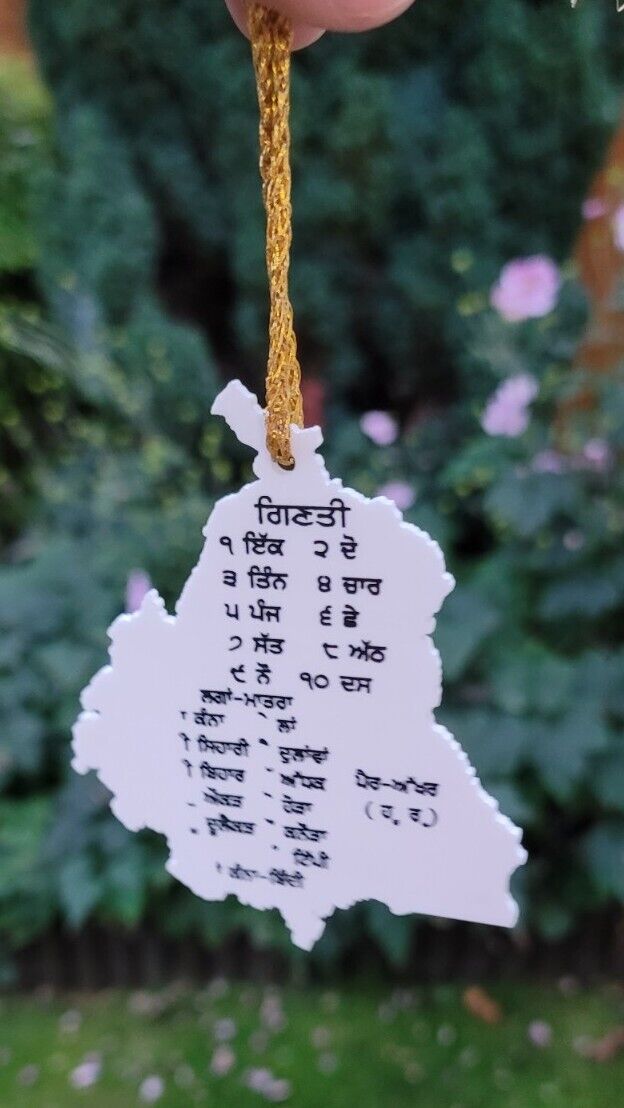 ਗਿਣਤੀ
੧ ਇੱਕ ੨ ਦੋ
੩ ਤਿੰਨ ੪ ਚਾਰ
੫ ਪੰਜ ੬ ਛੇ
੭ ਸੱਤ ੮ ਅੱਠ
੯ ਨੌ ੧੦ ਦਸ
ਲਗਾਂ-ਮਾਤਰਾ
ਾ ਕੰਨਾ ੇ ਲਾਂ
ਿ ਸਿਹਾਰੀ ੈ ਦੁਲਾਂਵਾਂ
ੀ ਬਿਹਾਰ ੱ ਅੱਧਕ ਪੈਰ-ਅੱਖਰ
ੁ ਔਂਕੜ ੋ ਹੋੜਾ
ੂ ਦੁਲੈਂਕੜ ੌ ਕਨੌੜਾ
ੰ ਟਿੱਪੀ
ਾਂ ਕੰਨਾ-ਬਿੰਦੀ